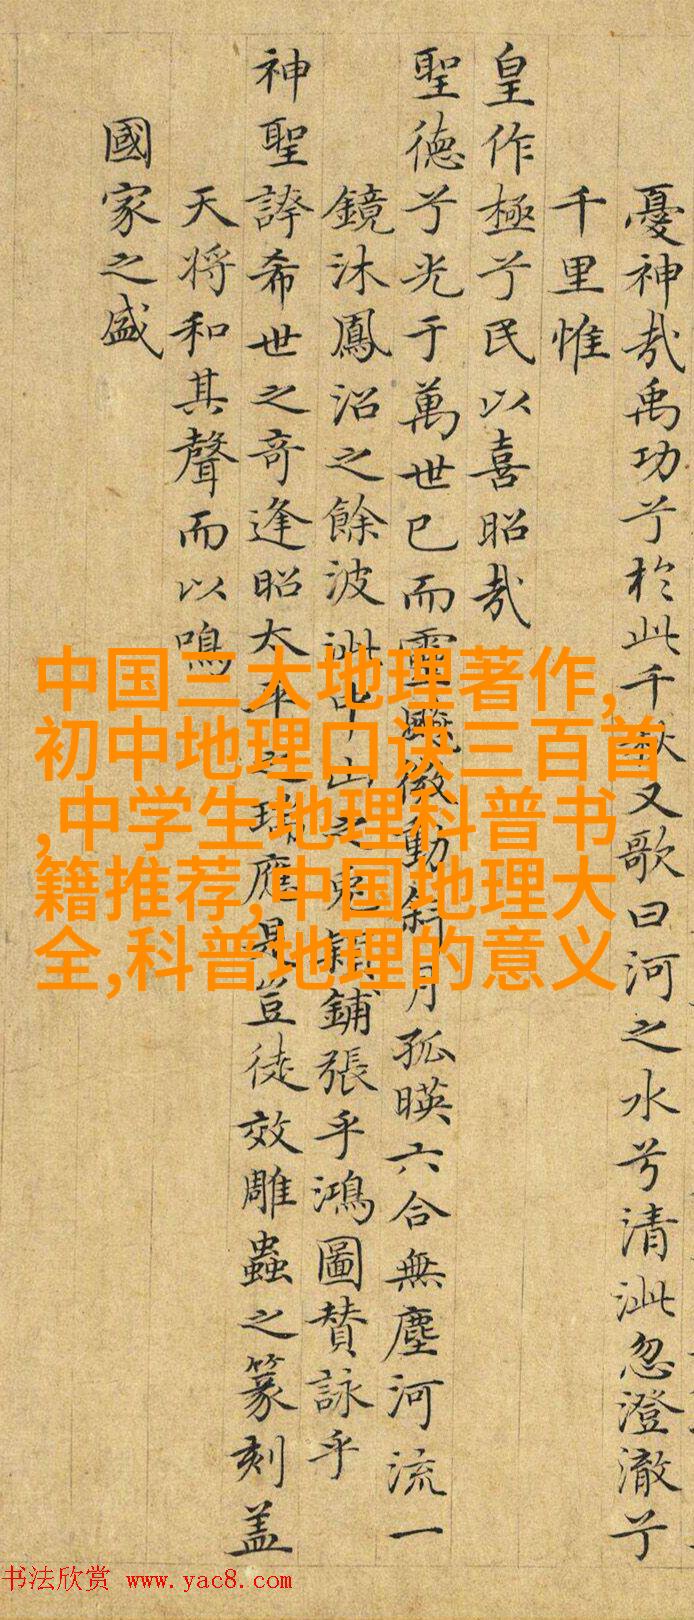 憂神哉禹功兮於此千秋又歌曰河之水兮清泚忽澄澈兮
千里惟
皇作極兮民以喜昭哉
聖德兮光于萬世已而靈飈微動斜月孤暎六合無塵河流一
鏡沐鳳沼之餘波泚中山之兔穎鋪張乎鴻圖賛詠乎
神聖誇希世之奇逢昭太平之瑞應是豈徒效雕蟲之篆刻盖
天将和其聲而以鳴
國家之盛
中国三大地理著作,
初中地理口诀三百首
,中学生地理科普书
籍推荐,中国地理大
全,科普地理的意义
书法欣赏 www.yac8.com